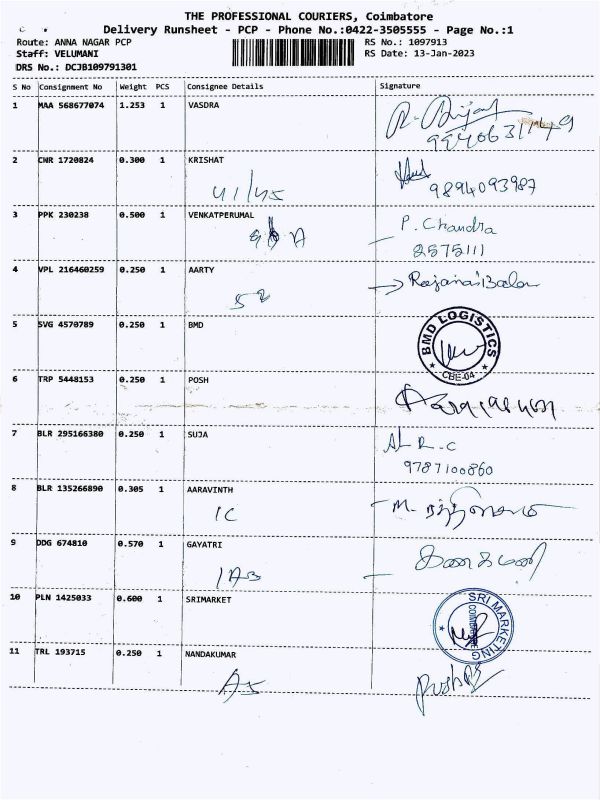 THE PROFESSIONAL COURIERS, Coimbatore
Delivery Runsheet - PCP - Phone No.:0422-3505555 - Page No.:1
Route: ANNA NAGAR PCP
RS No.: 1097913
Staff: VELUMANI
RS Date: 13-Jan-2023
DRS No.: DCJB109791301
S No Consignment No Weight PCS Consignee Details Signature
1 MAA 568677074 1.253 1 VASDRA
2 CNR 1720824 0.300 1 KRISHAT
41/45
9894093987
3 PPK 230238 0.500 1 VENKATPERUMAL
P. Chandra
2575111
4 VPL 216460259 0.250 1 AARTY
5 SVG 4570789 0.250 1 BMD
BMD LOGISTICS
CBE-04
6 TRP 5448153 0.250 1 POSH
7 BLR 295166380 0.250 1 SUJA
9787100860
8 BLR 135266890 0.305 1 AARAVINTH
1C
9 DDG 674810 0.570 1 GAYATRI
கனகமணி
10 PLN 1425033 0.600 1 SRIMARKET
SRI MARKETING
COIMBATORE
11 TRL 193715 0.250 1 NANDAKUMAR
A5